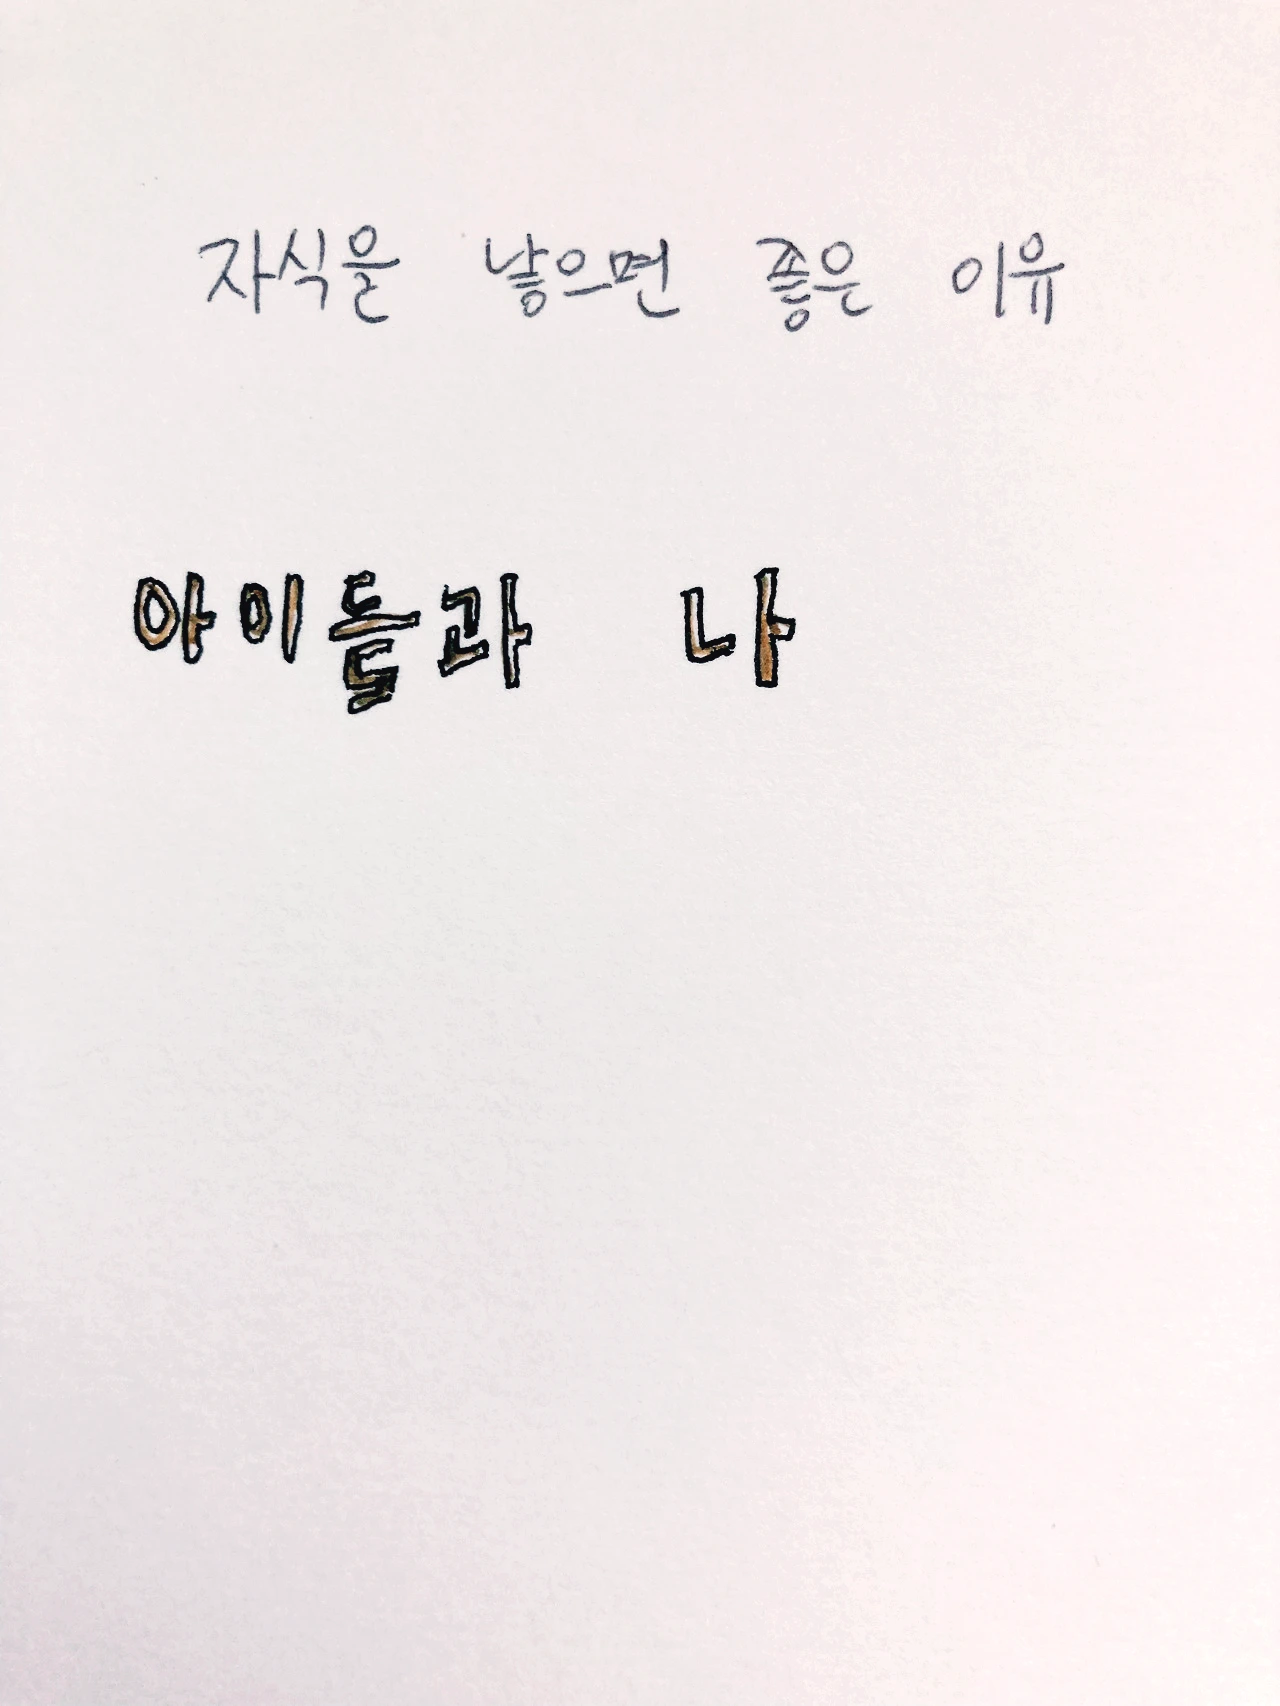 자식을 낳으면 좋은 이유
아이들과 나